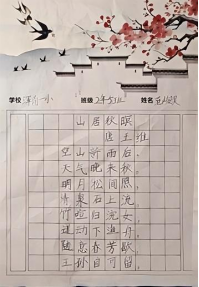 学校 小 班级 2年 班 姓名
山居秋暝
唐王维
空山新雨后,
天气晚来秋。
明月松间照,
清泉石上流。
竹喧归浣女,
莲动下渔舟。
随意春芳歇,
王孙自可留。